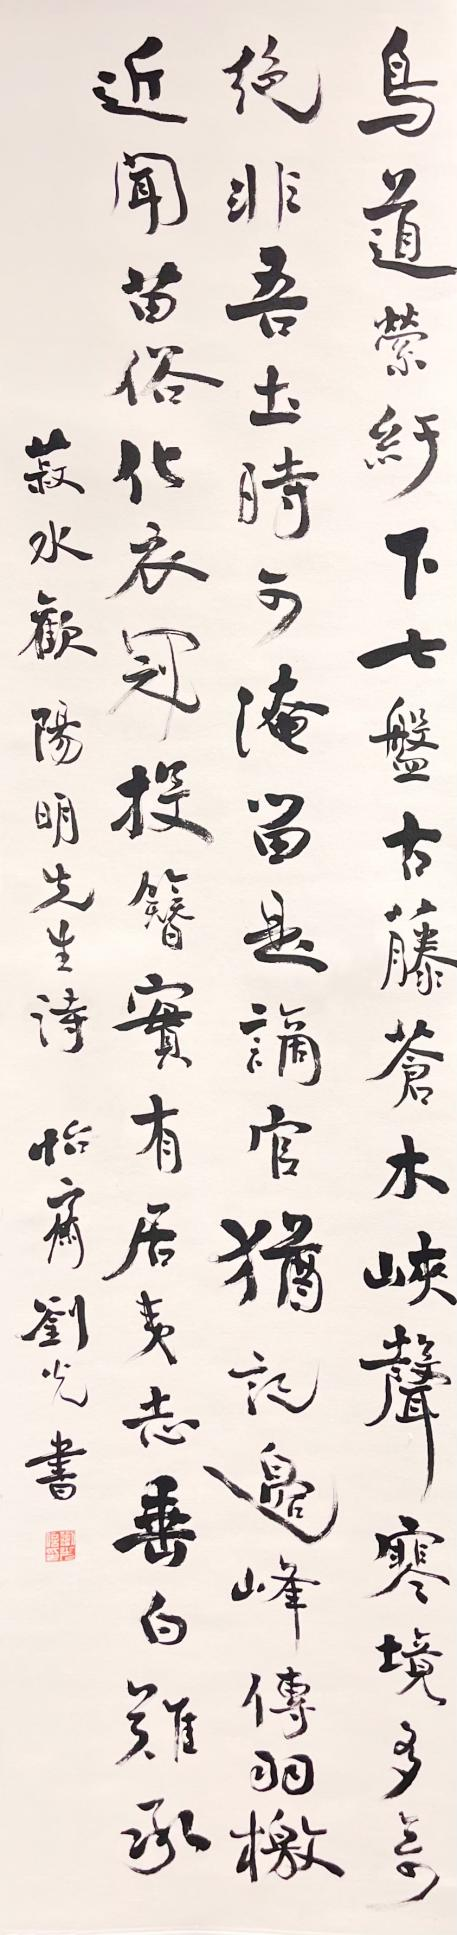 鳥道縈紆下七盤古藤蒼木峽聲寒境多奇
絶非吾土時可淹留是謫官猶記邊峰傳羽檄
近聞苗俗化衣冠投簪實有居夷志垂白難承
菽水歡 陽明先生詩 怡齋劉光書